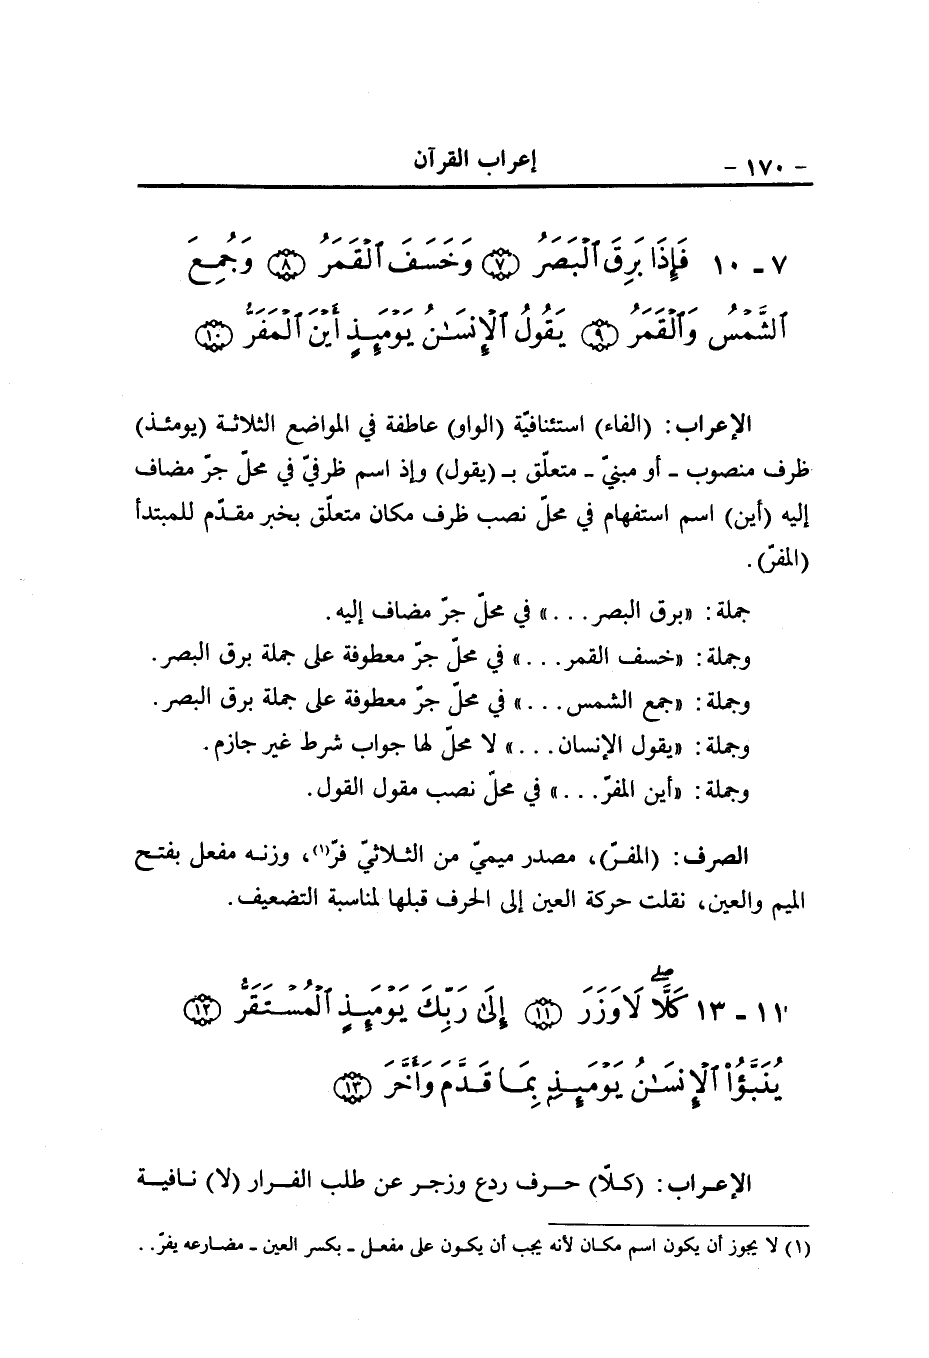 - ١٧٠ - إعراب القرآن
٧ - ١٠ فَإِذَا بَرِقَ ٱلْبَصَرُ ٧ وَخَسَفَ ٱلْقَمَرُ ٨ وَجُمِعَ
ٱلشَّمْسُ وَٱلْقَمَرُ ٩ يَقُولُ ٱلْإِنسَـٰنُ يَوْمَئِذٍ أَيْنَ ٱلْمَفَرُّ ١٠
الإعراب: (الفاء) استئنافيّة (الواو) عاطفة في المواضع الثلاثة (يومئذ)
ظرف منصوب - أو مبنيّ - متعلّق بـ (يقول) وإذ اسم ظرفيّ في محلّ جرّ مضاف
إليه (أين) اسم استفهام في محلّ نصب ظرف مكان متعلّق بخبر مقدّم للمبتدأ
(المفرّ).
جملة: «برق البصر...» في محلّ جرّ مضاف إليه.
وجملة: «خسف القمر...» في محلّ جرّ معطوفة على جملة برق البصر.
وجملة: «جمع الشمس...» في محلّ جرّ معطوفة على جملة برق البصر.
وجملة: «يقول الإنسان...» لا محلّ لها جواب شرط غير جازم.
وجملة: «أين المفرّ...» في محلّ نصب مقول القول.
الصرف: (المفرّ)، مصدر ميميّ من الثلاثيّ فرّ(١)، وزنه مفعل بفتح
الميم والعين، نقلت حركة العين إلى الحرف قبلها لمناسبة التضعيف.
١١ - ١٣ كَلَّا ۖ لَا وَزَرَ ١١ إِلَىٰ رَبِّكَ يَوْمَئِذٍ ٱلْمُسْتَقَرُّ ١٢
يُنَبَّؤُا۟ ٱلْإِنسَـٰنُ يَوْمَئِذٍ بِمَا قَدَّمَ وَأَخَّرَ ١٣
الإعراب: (كلّا) حرف ردع وزجر عن طلب الفرار (لا) نافية
(١) لا يجوز أن يكون اسم مكان لأنه يجب أن يكون على مفعل - بكسر العين - مضارعه يفرّ..